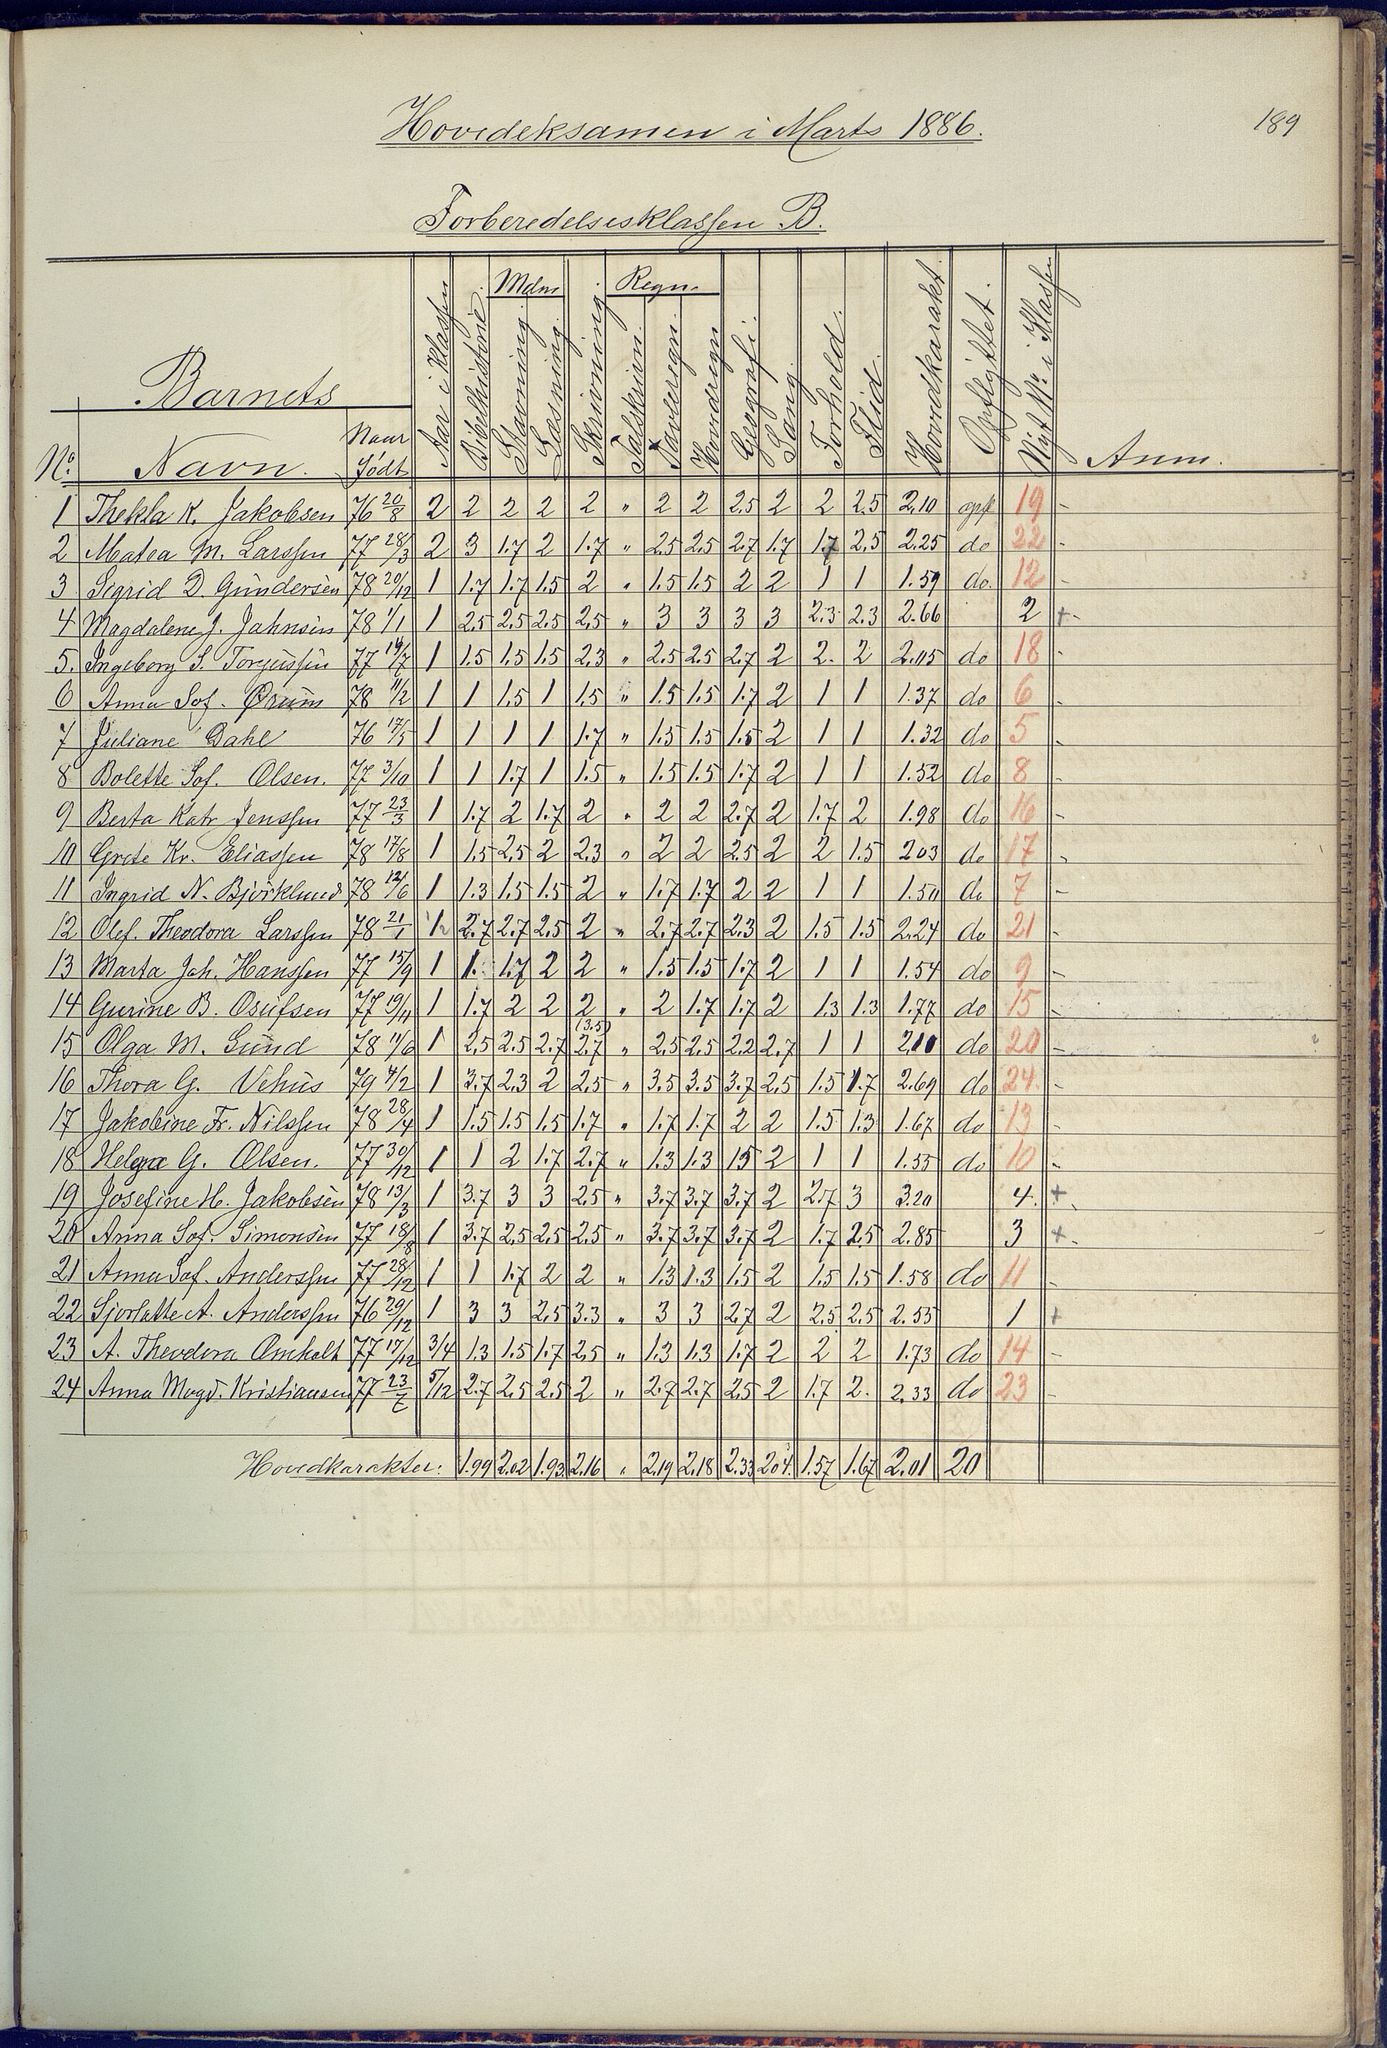 189
Hovedeksamen i Marts 1886.
Forberedelsesklassen B.
Barnets
No. Navn. Naar Født Aar i Klassen Bibelhistorie. Mdm. Stavning. Læsning. Skrivning. Regn. Talskrivn. Tavleregn. Hovdregn Geografi. Sang. Forhold. Flid. Hovdkarakt. Opflyttet. Nyt No i Klassen Anm.
1 Thekla K. Jakobsen 76 20/8 2 2 2 2 2 " 2 2 2.5 2 2 2.5 2.10 opf 19 -
2 Matea M. Larssen 77 28/3 2 3 1.7 2 1.7 " 2.5 2.5 2.7 1.7 1.7 2.5 2.25 do 22 -
3 Sigrid D. Gundersen 78 20/12 1 1.7 1.7 1.5 2 " 1.5 1.5 2 2 1 1 1.59 do. 12 -
4 Magdalene J. Jahnsen 78 1/1 1 2.5 2.5 2.5 2.5 " 3 3 3 3 2.3 2.3 2.66 2 +
5. Ingeborg S. Torjussen 77 14/7 1 1.5 1.5 1.5 2.3 " 2.5 2.5 2.7 2 2. 2 2.05 do 18 -
6 Anna Sof. Ørum 78 11/2 1 1 1.5 1 1.5 " 1.5 1.5 1.7 2 1 1 1.37 do 6 -
7 Juliane Dahl 76 17/5 1 1 1 1 1.7 " 1.5 1.5 1.5 2 1 1 1.32 do 5 -
8 Bolette Sof. Olsen. 77 3/10 1 1 1.7 1 1.5 " 1.5 1.5 1.7 2 1 1 1.52 do 8 -
9 Berta Katr Jenssen 77 23/3 1 1.7 2 1.7 2 " 2 2 2.7 2 1.7 2 1.98 do 16 -
10 Grete Kr. Eliassen 78 17/8 1 1.5 2.5 2 2.3 " 2 2 2.5 2 2 1.5 2.03 do 17 -
11 Ingrid N. Bjørklund 78 12/6 1 1.3 1.5 1.5 2 " 1.7 1.7 2 2 1 1 1.50 do 7 -
12 Olef. Theodora Larssen 78 21/1 1/2 2.7 2.7 2.5 2 " 2.7 2.7 2.3 2 1.5 1.5 2.24 do 21 -
13 Marta Joh. Hanssen 77 15/9 1 1. 1.7 2 2 " 1.5 1.5 1.7 2 1 1 1.54 do 9 -
14 Gurine B. Osufsen 77 19/11 1 1.7 2 2 2 " 2 1.7 1.7 2 1.3 1.3 1.77 do 15 -
15 Olga M. Lund 78 11/6 1 2.5 2.5 2.7 (3.5) 2.7 " 2.5 2.5 2.2 2.7 1 1 2.10 do 20 -
16 Thora G. Vehus 79 4/2 1 3.7 2.3 2 2.5 " 3.5 3.5 3.7 2.5 1.5 1.7 2.69 do 24. -
17 Jakobine Fr. Nilssen 78 28/4 1 1.5 1.5 1.5 1.7 " 1.7 1.7 2 2 1.5 1.3 1.67 do 13 -
18 Helga G. Olsen. 77 30/12 1 1 2 1.7 2.7 " 1.3 1.3 1.5 2 1 1 1.55 do 10 -
19 Josefine H. Jakobsen 78 13/3 1 3.7 3 3 2.5 " 3.7 3.7 3.7 2 2.7 3 3.20 4. +
20 Anna Sof. Simonsen 77 18/8 1 3.7 2.5 2.5 2.5 " 3.7 3.7 3.7 2 1.7 2.5 2.85 3 +
21 Anna Sof. Anderssen 77 28/12 1 1 1.7 2 2 " 1.3 1.3 1.5 2 1.5 1.5 1.58 do 11 -
22 A. Anderssen 76 29/12 1 3 3 2.5 3.3 " 3 3 2.7 2 2.5 2.5 2.55 1 +
23 A. Theodora Omholt 77 17/12 3/4 1.3 1.5 1.7 2.5 " 1.3 1.3 1.7 2 2 2 1.73 do 14 -
24 Anna Magd. Kristiansen 77 23/7 5/12 2.7 2.5 2.5 2 " 2.7 2.7 2.5 2 1.7 2. 2.33 do 23 -
Hovedkarakter: 1.99 2.02 1.93. 2.16 " 2.19 2.18 2.33 2.04. 1.57 1.67 2.01 20